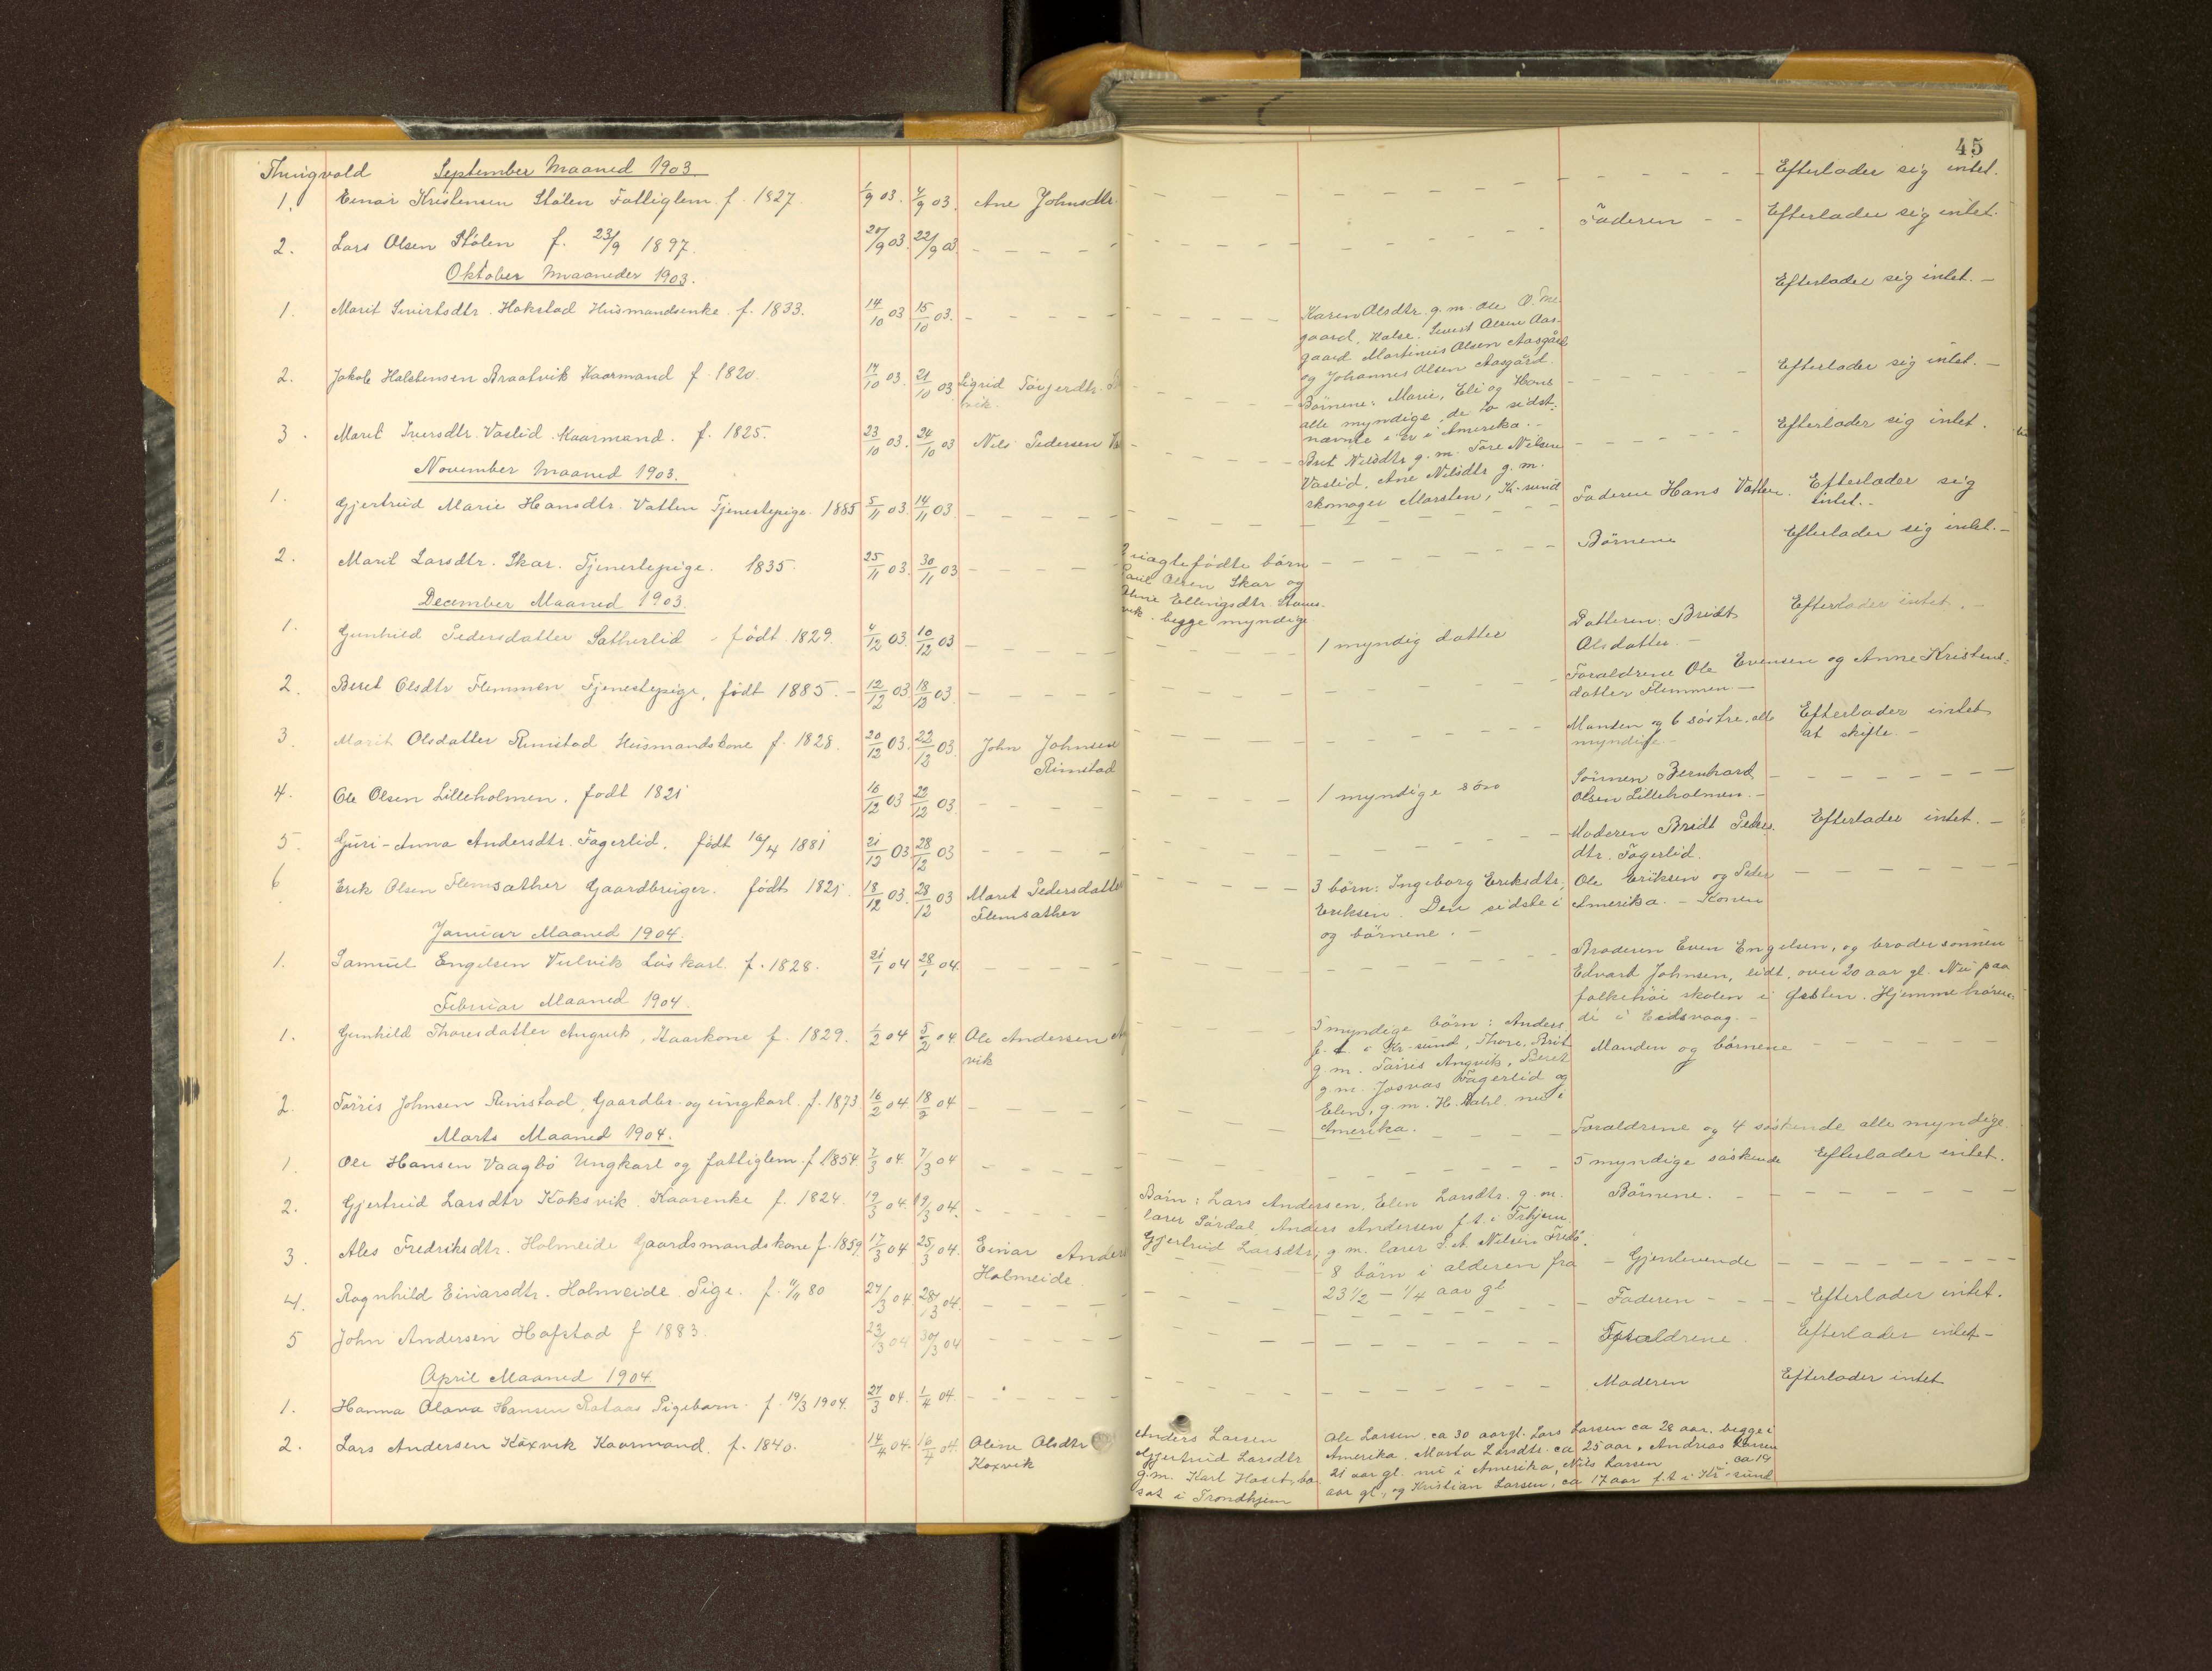 45
Thingvold September Maaned 1903
1. Einar Kristensen Stölen Fattiglem f. 1827. 1/9 03. 4/9 03. Ane Johnsdtr. Efterlader sig intet.
2. Lars Olsen Stölen f. 23/9 1897. 20/9 03. 22/9 03. Faderen Efterlader sig intet.
Oktober Maaneder 1903.
1. Marit Sivertsdtr. Hakstad Husmandsenke f. 1833. 14/10 03 15/10 03. Efterlader sig intet.
Karen Olsdtr. g. m. Ole O.
gaard, Halse. Sivert Olsen Aas-
gaard Martinus Olsen Aasgård
og Johannes Olsen Aasgård.
2. Jakob Halstensen Braatvik Kaarmand f. 1820. 14/10 03. 21/10 03 Sigrid
vik. Efterlader sig intet.
Börnene: Marie, Eli og Hans
alle myndige, de to sidst-
nævnte er i Amerika.
3. Marit Iversdtr. Vaslid Kaarmand. f. 1825. 23/10 03. 24/10 03 Nils Pedersen Efterlader sig intet.
Brit Nilsdtr g. m. Tore Nilsen
Vaslid, Ane Nilsdtr g. m.
skomager Marsten, Kr-sund
November Maaned 1903.
1. Gjertrud Marie Hansdtr. Vatten Tjenestepige. 1885 5/11 03. 14/11 03. Faderen Hans Vatten. Efterlader sig
intet.
2. Marit Larsdtr. Skar. Tjenestepige. 1835. 25/11 03. 30/11 03 Börnene Efterlader sig intet.
2 uægtefödte börn
Paul Olsen Skar og
Ellingsdtr. Stans-
vik. begge myndige.
December Maaned 1903.
1. Gunhild Pedersdatter Sætherlid - födt. 1829. 4/12 03. 10/12 03 1 myndig datter Datteren: Bridt Efterlader intet.
Olsdatter.
2. Beret Olsdtr Flemmen Tjenestepige, födt 1885. 12/12 03. 18/12 03. Forældrene Ole Evensen og Anne Kristens-
datter Flemmen.
3. Marit Olsdatter Rimstad Husmandskone f. 1828. 20/12 03. 22/12 03. John Johnsen
Rimstad Manden og 6 söstre. alle Efterlader intet
myndige. at skifte.
4. Ole Olsen Lilleholmen. födt 1821 16/12 03 22/12 03. 1 myndige sön Sönnen Bernhard
Olsen Lilleholmen.
5. Guri-Anna Andersdtr. Fagerlid. födt 16/4 1881 21/12 03. 28/12 03 Moderen Bridt Peders. Efterlader intet.
dtr. Fagerlid.
6. Erik Olsen Flemsæther Gaardbruger. födt 1821. 18/12 03. 28/12 03 Marit Pedersdatter
Flemsæther 3 börn: Ingeborg Eriksdtr, Ole Eriksen og Peder
Eriksen. Den sidste i Amerika. - Konen
og börnene.
Januar Maaned 1904.
1. Samuel Engelsen Vulvik Löskarl. f. 1828. 21/1 04 28/1 04. Broderen Even Engelsen, og brodersönnen
Edvard Johnsen, lidt over 20 aar gl. Nu paa
folkehöi skolen i Hjemmehören-
de i Eidsvaag.
Februar Maaned 1904.
1. Gunhild Thoresdatter Angvik, Kaarkone f. 1829. 1/2 04 5/2 04. Ole Andersen
vik Manden og börnene
5 myndige börn: Anders
f. t. i Kr-sund, Thore, Brit
g m. Törris Angvik, Beret
g. m. Josvas Fagerlid og
Elen, g. m. H. Dahl. nu i
Amerika.
2. Törris Johnsen Rimstad, Gaardbr. og ungkarl. f. 1873. 16/2 04. 18/2 04 Forældrene og 4 söskende alle myndige
Marts Maaned 1904.
1. Ole Hansen Vaagbö Ungkarl og fattiglem. f. 1854. 2/3 04. 7/3 04 5 myndige söskende Efterlader intet.
2. Gjertrud Larsdtr Koksvik. Kaarenke f. 1824. 19/3 04. 19/3 04. Börnene.
Börn: Lars Andersen, Elen Larsdtr. g. m.
lærer Sördal, Anders Andersen f. t. i Trhjem.
Gjertrud Larsdtr, g m. lærer S. A. Nilsen
3. Ales Fredriksdtr. Holmeide Gaardsmandskone f. 1859. 17/3 04 25/3 04. Einar
Holmeide. 8 börn i alderen fra Gjenlevende
23 1/2 - 1/4 aar gl
4. Ragnhild Einarsdtr. Holmeide Pige. f. 11/11 80 27/3 04. 28/3 04. Faderen Efterlader intet.
5 John Andersen Hafstad f 1883. 23/3 04 30/3 04 Forældrene. Efterlader intet
April Maaned 1904.
1. Hanna Olava Hansen Rotaas Pigebarn. f. 19/3 1904. 27/3 04. 1/4 04. Moderen Efterlader intet
2. Lars Andersen Koxvik Kaarmand. f. 1840. 14/4 04. 16/4 04. Oline Olsdtr
Koxvik
Anders Larsen Ole Larsen. ca 30 aar gl. Lars Larsen ca 28 aar. begge i
Gjertrud Larsdtr Amerika. Marta Larsdtr. ca 25 aar, Andreas Larsen
g. m. Karl bo- 21 aar gl. nu i Amerika, Nils Larsen ca 19
sat i Trondhjem aar gl., og Kristian Larsen, ca 17 aar f. t. i Kr-sund